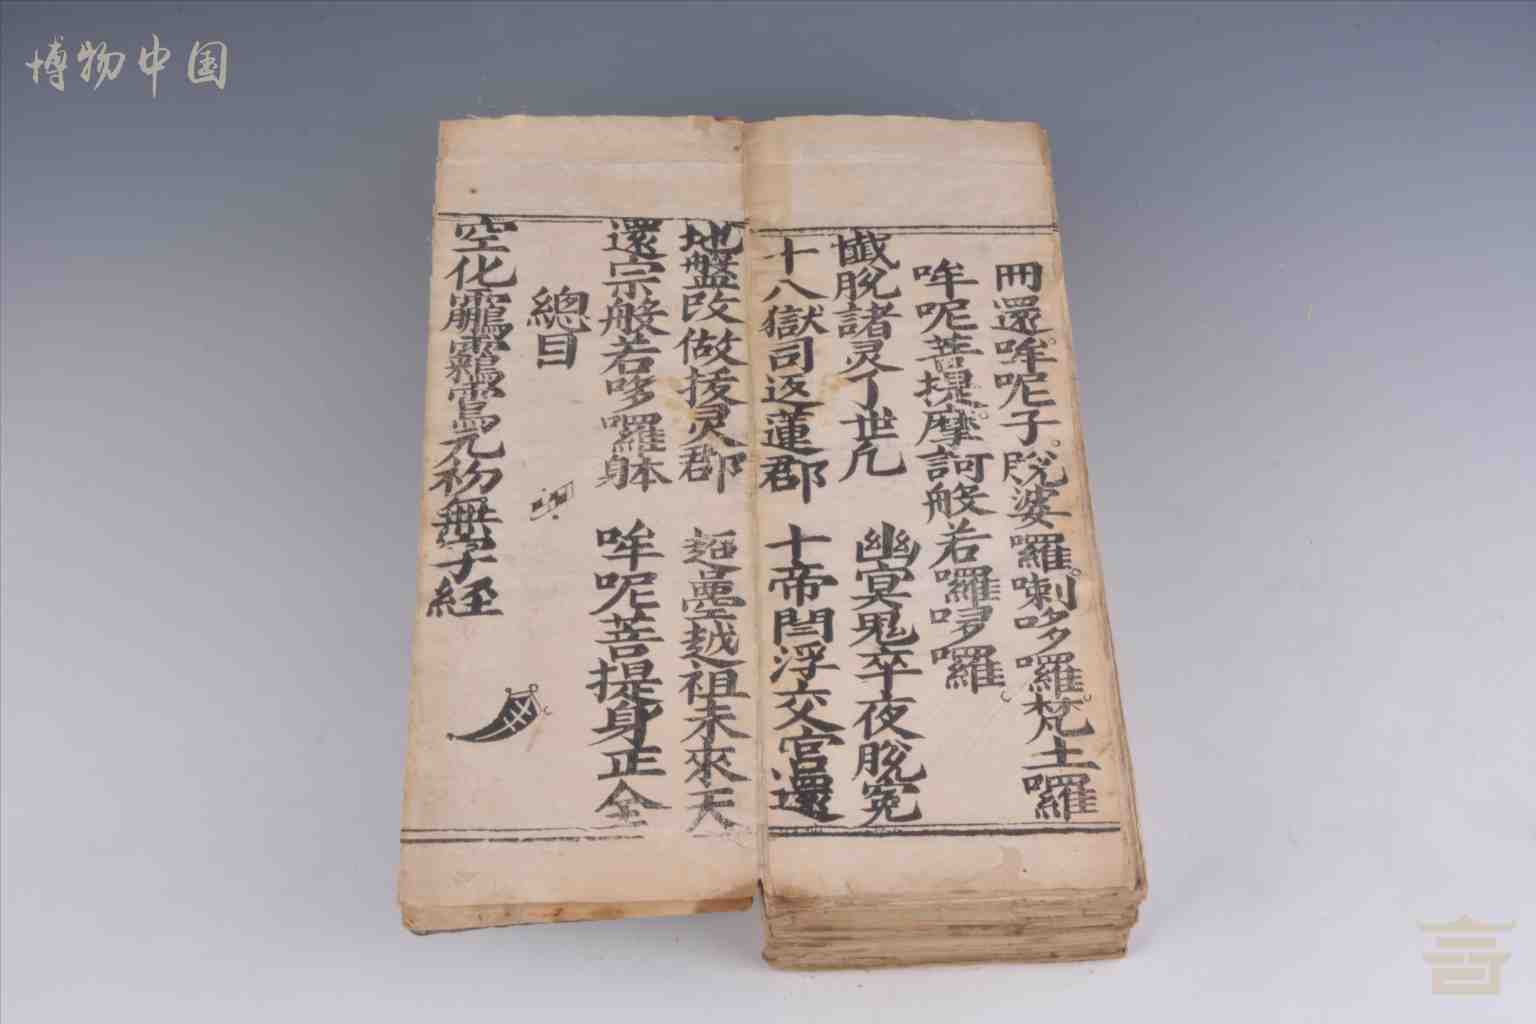 博物中国
冊還哞呢子脱婆囉喇哆囉梵土囉
哞呢菩提摩訶般若囉哆囉
懺脱諸灵了世凢 幽冥鬼卒夜脱冤
十八獄司返蓮郡 十帝閆浮交宫還
地盤改做拔灵郡 超曇越祖未來天
還宗般若哆囉躰 哞呢菩提身正全
總目
空化元初無字経